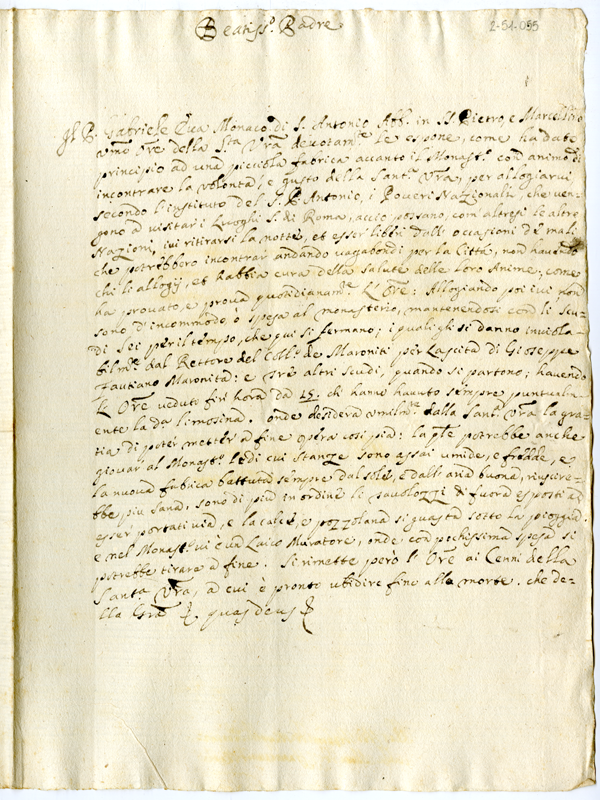 2-54-095
Beatiss.o Padre
Il P. Gabriele Eva Monaco di S. Antonio Abb. in SS. Pietro, e Marcellino
umo Ore della Sta Vra devotamte le espone, come ha dato
principio ad una picciola fabrica accanto il Monast.o con animo di
incontrare la volontà, e gusto della Santa Vra, per allogiarvi
secondo l'instituto del S. P. Antonio, i Poveri Nazionali, che ven-
gono à visitar i Luoghi S. di Roma, acciò possano, com'altresì le altre
Nazioni, ivi ritirarsi la notte, et esser liberi dall'occasioni de mali
che potrebbero incontrar andando vagabondi per la Città, non havendo
chi li allogij, et habbia cura della salute delle loro Anime; come
ha provato, e prova quotidianamte l'Ore: Allogiando poi ivi, non
sono d'incommodo ò spesa al monasterio, mantenendosi con li scu-
di sei per il tempo, che qui si fermano; i quali gli si danno inviola-
bilmte dal Rettore del Coll.o de Maroniti per lascità di Gioseppe
Fautiano Maronita: e tre altri scudi, quando si partono; havendo
l'Ore veduto fin hora da 15. ch'hanno havuto sempre puntualm-
ente la da limosina. onde desidera umilmte dalla Santa Vra la gra-
tia di poter metter à fine opera così pia: la ple potrebbe anche
giovar al Monast.o le di cui stanze sono assai umide, e fredde, e
la nuova fabrica battuta sempre dal sole, e dall'aria buona, riuscire-
bbe più sana, sono di più in ordine li tavolozzi di fuora esposti ad
esser portati via, e la calcie, e pozzolana si guasta sotto la pioggia.
e nel Monast.o vi è un Laico Muratore, onde con pochissima spesa si
potrebbe tirare à fine. Si rimette però l'Ore ai Cenni della
Santa Vra, à cui è pronto ubidire fino alla morte. che de-
lla Gra quas deus